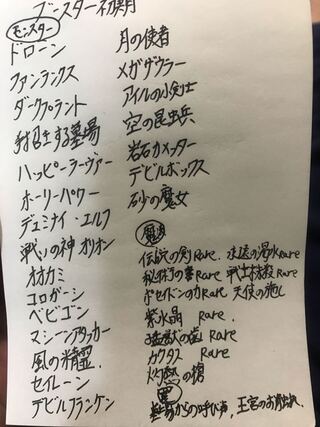 ブースター初期
モンスター
ドローン
ファランクス
ダークプラント
封召する墓場
ハッピーラヴァー
ホーリーパワー
デュミナイ・エルフ
戦いの神 オリオン
オオカミ
コロガーシ
ベビゴン
マシーンアタッカー
風の精霊.
セイレーン
デビルフランケン
月の使者
メガザウラー
アイルの小剣士
空の昆虫兵
岩石カメッター
デビルボックス
砂の魔女
魔法
伝説の剣Rare. 永遠の渇水Rare
秘術の書Rare 戦士抹殺Rare
ポセイドンの力Rare 天使の施し
紫水晶 Rare.
猛獣の歯 Rare
カクタス Rare
灼熱の槍
罠
墓場からの呼び声, 王宮のお触れ